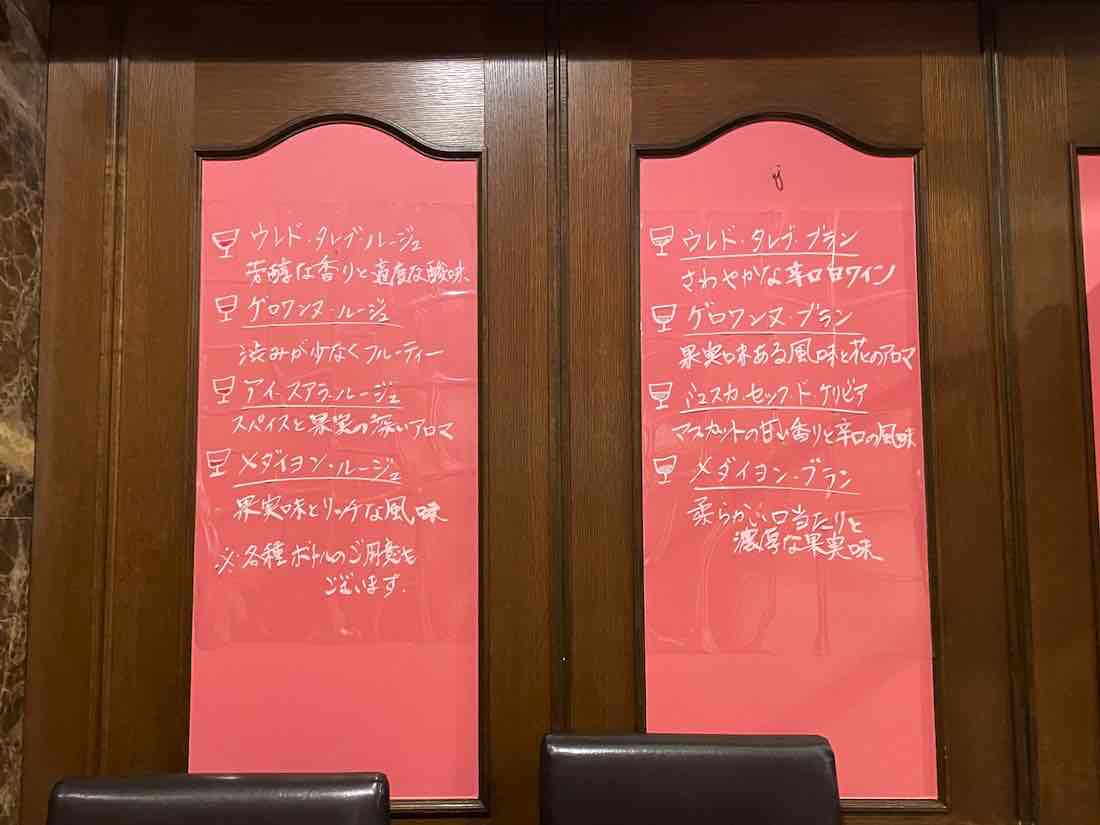 ウレド・タレブ・ルージュ
芳醇な香りと適度な酸味
ゲロワンヌ・ルージュ
渋みが少なくフルーティー
アイ・スアラ・ルージュ
スパイスと果実の深いアロマ
メダイヨン・ルージュ
果実味とリッチな風味
※各種ボトルのご用意も
ございます.
ウレド・タレブ・ブラン
さわやかな辛口白ワイン
ゲロワンヌ・ブラン
果実味ある風味と花のアロマ
ミュスカ・セック・ド・ケリビア
マスカットの甘い香りと辛口の風味
メダイヨン・ブラン
柔らかい口当たりと
濃厚な果実味